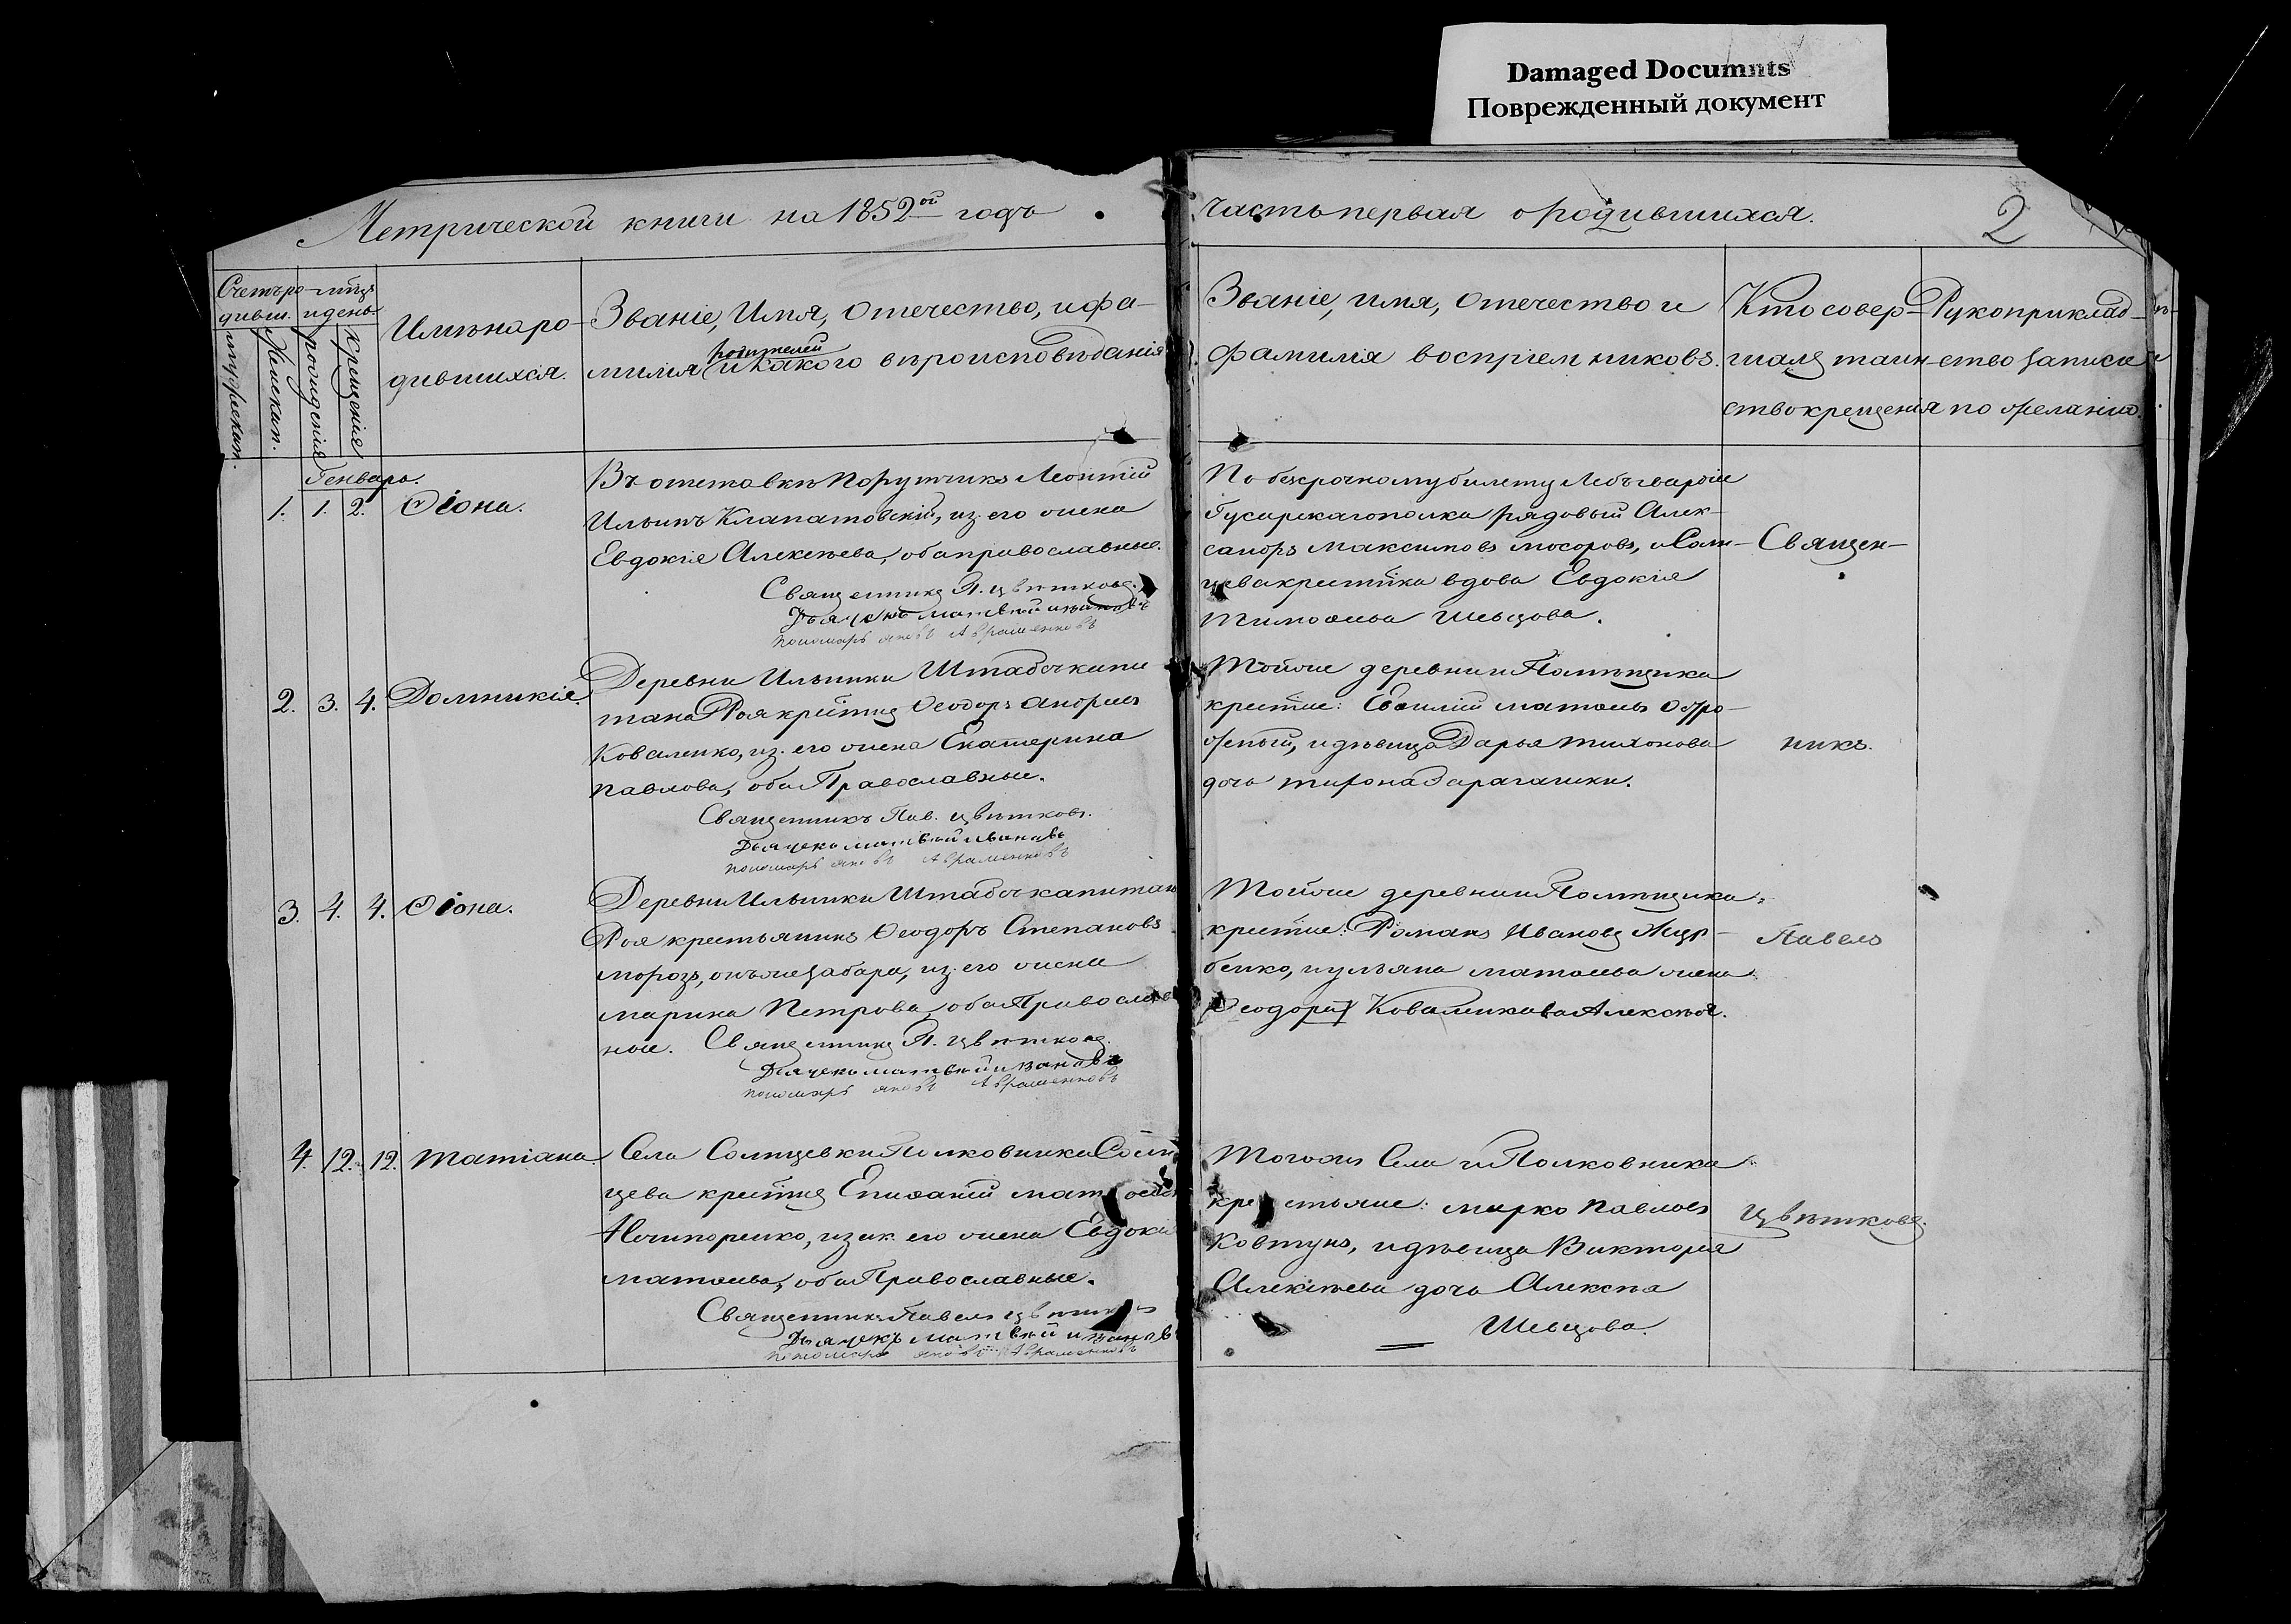 Damaged Documnts
Поврежденный документ
Метрической книги на 1852ой годъ
часть первая о родившихся.
2
Счетъ ро-
дивш.
мѣцъ
и день
Женскап.
рожденія
крещенія
Имѣна ро-
дившихся.
Званіе, Имя, Отечество, и фа-
милія родителей
и какого вѣроисповѣданія
Званіе, имя, отечество и
фамилія воспріемниковъ.
Кто совер-
шалъ таин-
ство крещенія
Рукоприклад-
ство записи
по желанію.
Генварь.
1. 1. 2. Ѳіона.
Въ отставкѣ Порутчикъ Леонтій
Ильинъ Клапатовскій, из. его жена
Евдокія Алексѣева, оба православные.
Священникъ П. Цвѣтковъ.
Дьячекъ Матвѣй Ивановъ
пономарь яковъ Авраменковъ
По безсрочному билету Лебъ гвардіи
Гусарскаго полка рядовый Алек-
сандръ Максимовъ
вдова Евдокія
Тимоѳеева Шевцова.
Священ-
2. 3. 4. Домникія.
Деревни Ильинки Штабсъ капи
тана Роя крестнъ Ѳеодоръ Андреевъ
Коваленко, из. его жена Екатерина
Павлова, оба Православные.
Священникъ Пав. Цвѣтковъ.
Дьячекъ Матвѣй Ивановъ
пономарь яковъ Авраменковъ
Тойже деревни и Помѣщика
крестне: Матѳеевъ
и дѣвица Дарья Тихонова
дочь Тихона
никъ.
3. 4. 4. Ѳіона.
Деревни Ильинки Штабсъ капитан
Роя крестьянинъ Ѳеодоръ Степановъ
Морозъ, онъже Забара, из. его жена
Марина Петрова, оба Православ
ные. Священникъ П. Цвѣтковъ.
Дьячекъ Матвѣй Ивановъ
пономарь яковъ Авраменковъ
Тойже деревни и Помѣщика
крестне: Романъ Ивановъ
и ульяна Матѳеева жена
Ѳеодора Коваленкова Алексѣя.
Павелъ
4. 12. 12. Татіана.
Села Солнцевки Полковника Солн
цева крестнъ Епифаній
Нечипоренко, из ак. его жена Евдокія
Матѳеева, оба Православные.
Священникъ Павелъ Цвѣтковъ
Дьячекъ Матвѣй Ивановъ
пономарь яковъ Авраменковъ
Тогожъ Села и Полковника
крестьяне: Марко Павловъ
Ковтунъ, и дѣвица Викторія
Алексѣева дочь Алексѣя
Шевцова.
Цвѣтковъ.